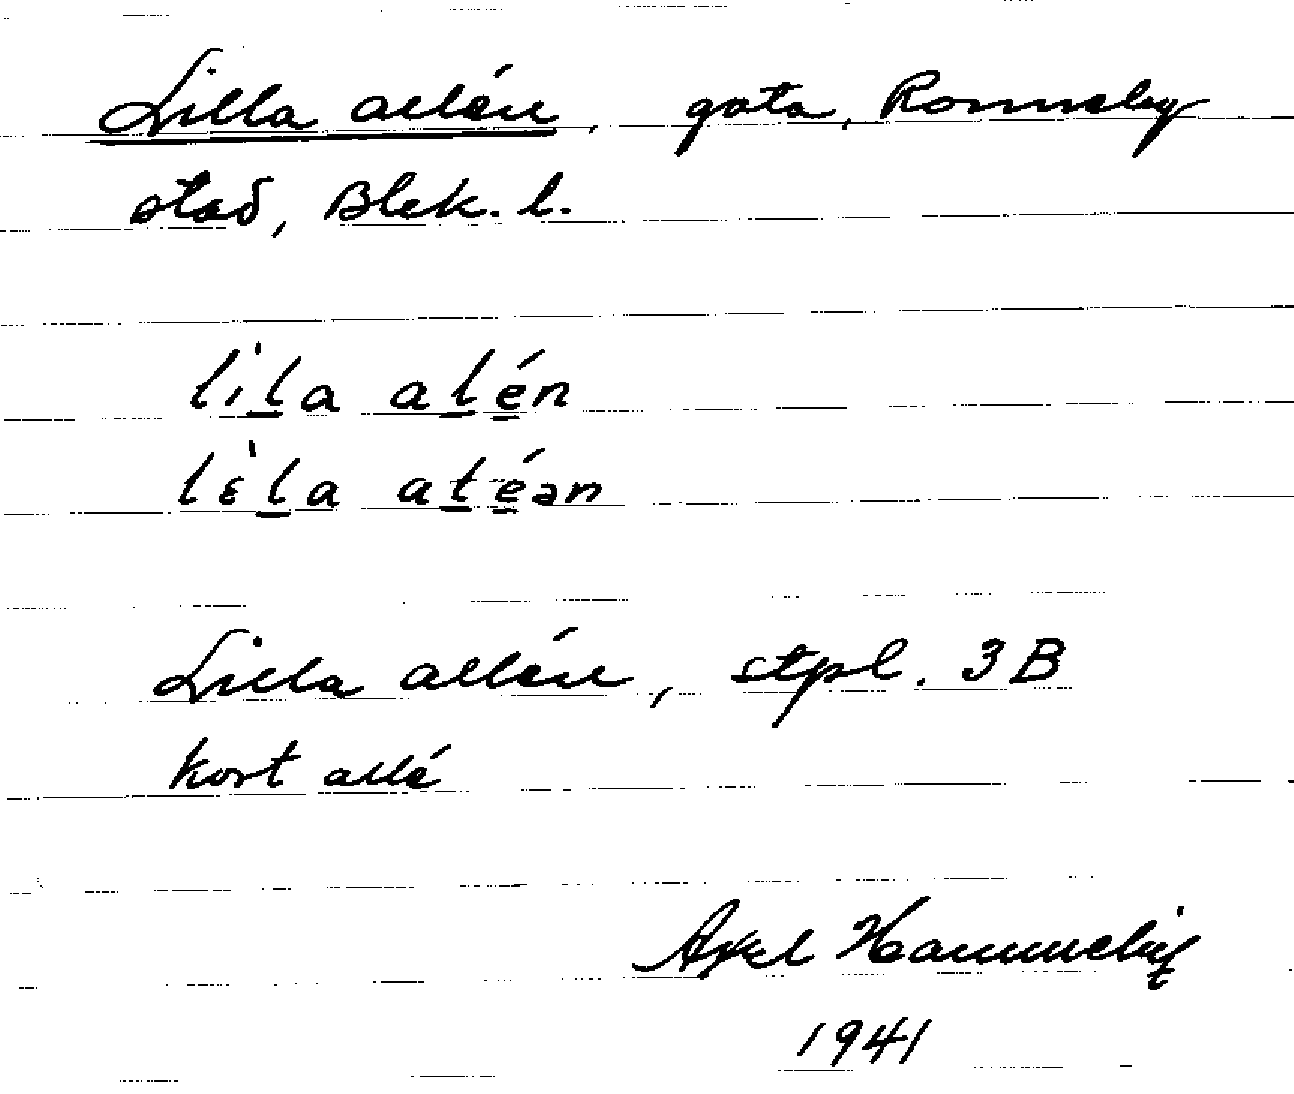 Lilla allén, gata, Ronneby
stad, Blek. l.
lìla alén
lɛ̀la aléən
Lilla allén, stpl. 3B
kort allé
Axel
1941